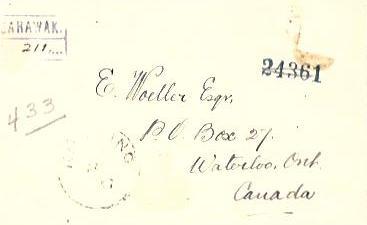 SARAWAK.
211
24361
433
E. Woeller Esqr.
P.O. Box 27.
Waterloo, Ont.
Canada